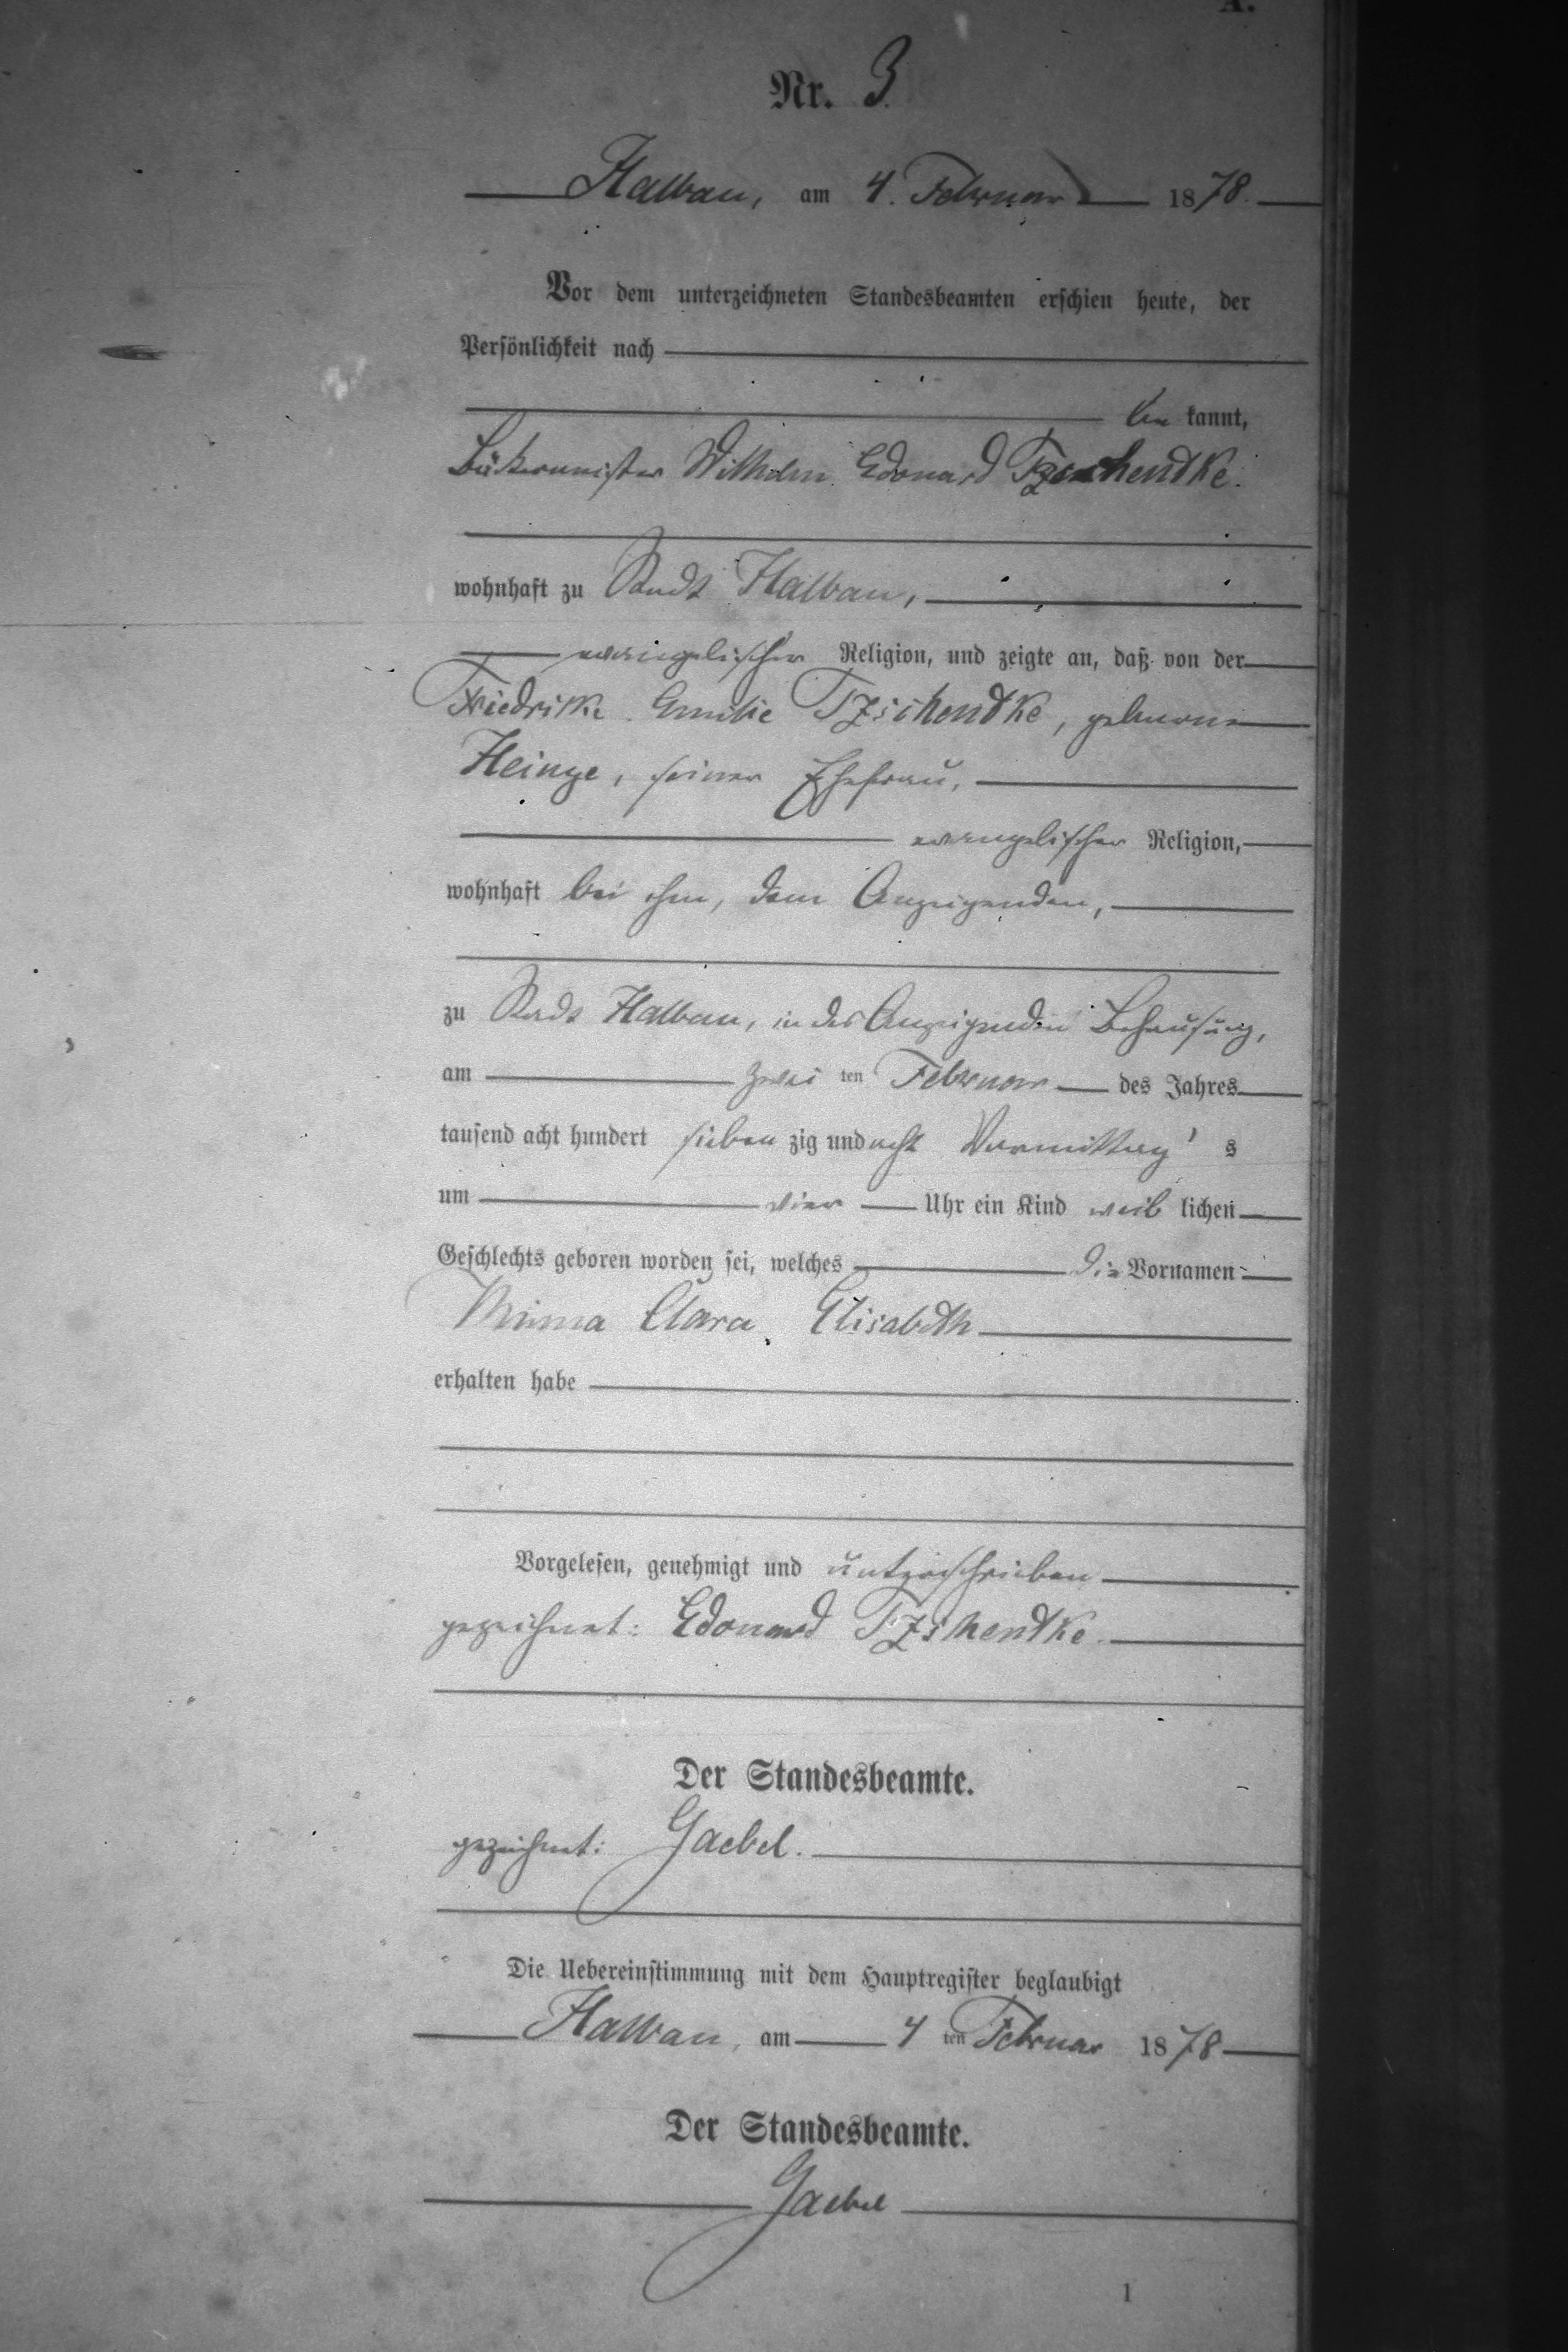 A.
Nr. 3.
Halbau, am 4. Februar 1878.
Vor dem unterzeichneten Standesbeamten erschien heute, der
Persönlichkeit nach
be kannt,
Bäckermeister Wilhelm Edouard Tzschendke.
wohnhaft zu Stadt Halbau,
evangelischer Religion, und zeigte an, daß von der
Friedrike Emilie Tzschendke, geborene
Heinze, seiner Ehefrau,
evangelischer Religion,
wohnhaft bei ihm, dem Anzeigenden,
zu Stadt Halbau, in des Anzeigenden Behausung,
am zwei ten Februar des Jahres
tausend acht hundert sieben zig und acht Vormittag's
um vier Uhr ein Kind weib lichen
Geschlechts geboren worden sei, welches die Vornamen
Minna Clara Elisabeth
erhalten habe
Vorgelesen, genehmigt und unterschrieben
gezeichnet: Edouard Tzschendke.
Der Standesbeamte.
gezeichnet: Gaebel.
Die Uebereinstimmung mit dem Hauptregister beglaubigt
Halbau, am 4 ten Februar 1878
Der Standesbeamte.
Gaebel
1